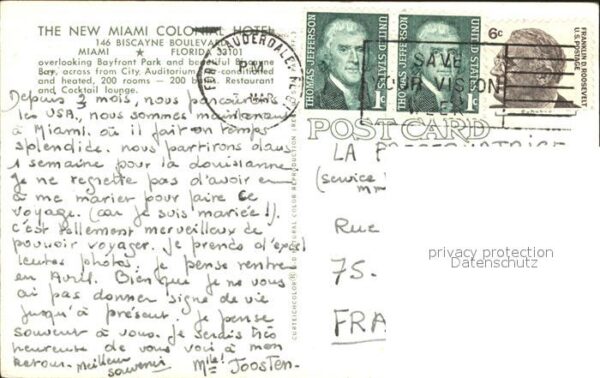 THE NEW MIAMI COLONIAL HOTEL
146 BISCAYNE BOULEVARD
MIAMI ★ FLORIDA 33101
overlooking Bayfront Park and beautiful Biscayne
Bay, across from City Auditorium. Air-conditioned
and heated, 200 rooms — 200 baths. Restaurant
and Cocktail lounge.
Depuis 3 mois, nous parcourons
les USA, nous sommes maintenant
à Miami où il fait un temps
splendide. nous partirons dans
1 semaine pour la Louisianne
Je ne regrette pas d'avoir eu
à me marier pour faire ce
voyage. (car je suis mariée!).
c'est tellement merveilleux de
pouvoir voyager. Je prends d'excel
lentes photos. Je pense rentrer
en Avril. Bien que je ne vous
ai pas donner signe de vie
jusqu'à présent. Je pense
souvent à vous. Je serais très
heureuse de vous voir à mon
retour. Meilleur
souvenir Mlle! JOOSTEN.
FORT LAUDERDALE
PM
THOMAS JEFFERSON
1c
U.S. POSTAGE
THOMAS JEFFERSON
1c
6c
FRANKLIN D. ROOSEVELT
U.S. POSTAGE
SAVE
YOUR VISION
WEEK
POST CARD
LA P
(service
Mm
Rue
75.
FRA
privacy protection
Datenschutz
CURTEICHCOLOR® 3-D NATURAL COLOR REPRODUCTION